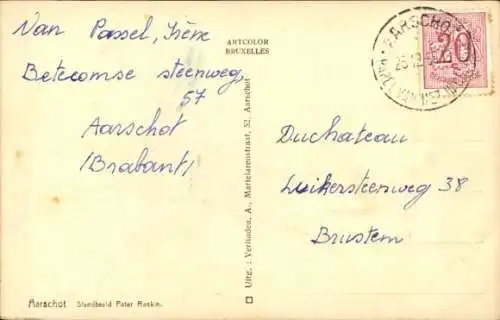 Van Passel, Irène
Betecomse steenweg,
57
Aarschot
(Brabant)
ARTCOLOR
BRUXELLES
Uitg.: Verhaeden, A., Martelarenstraat, 52, Aarschot
AARSCHOT
20
Duchateau
Luikersteenweg 38
Brustem
Aarschot Standbeeld Pater Raskin.